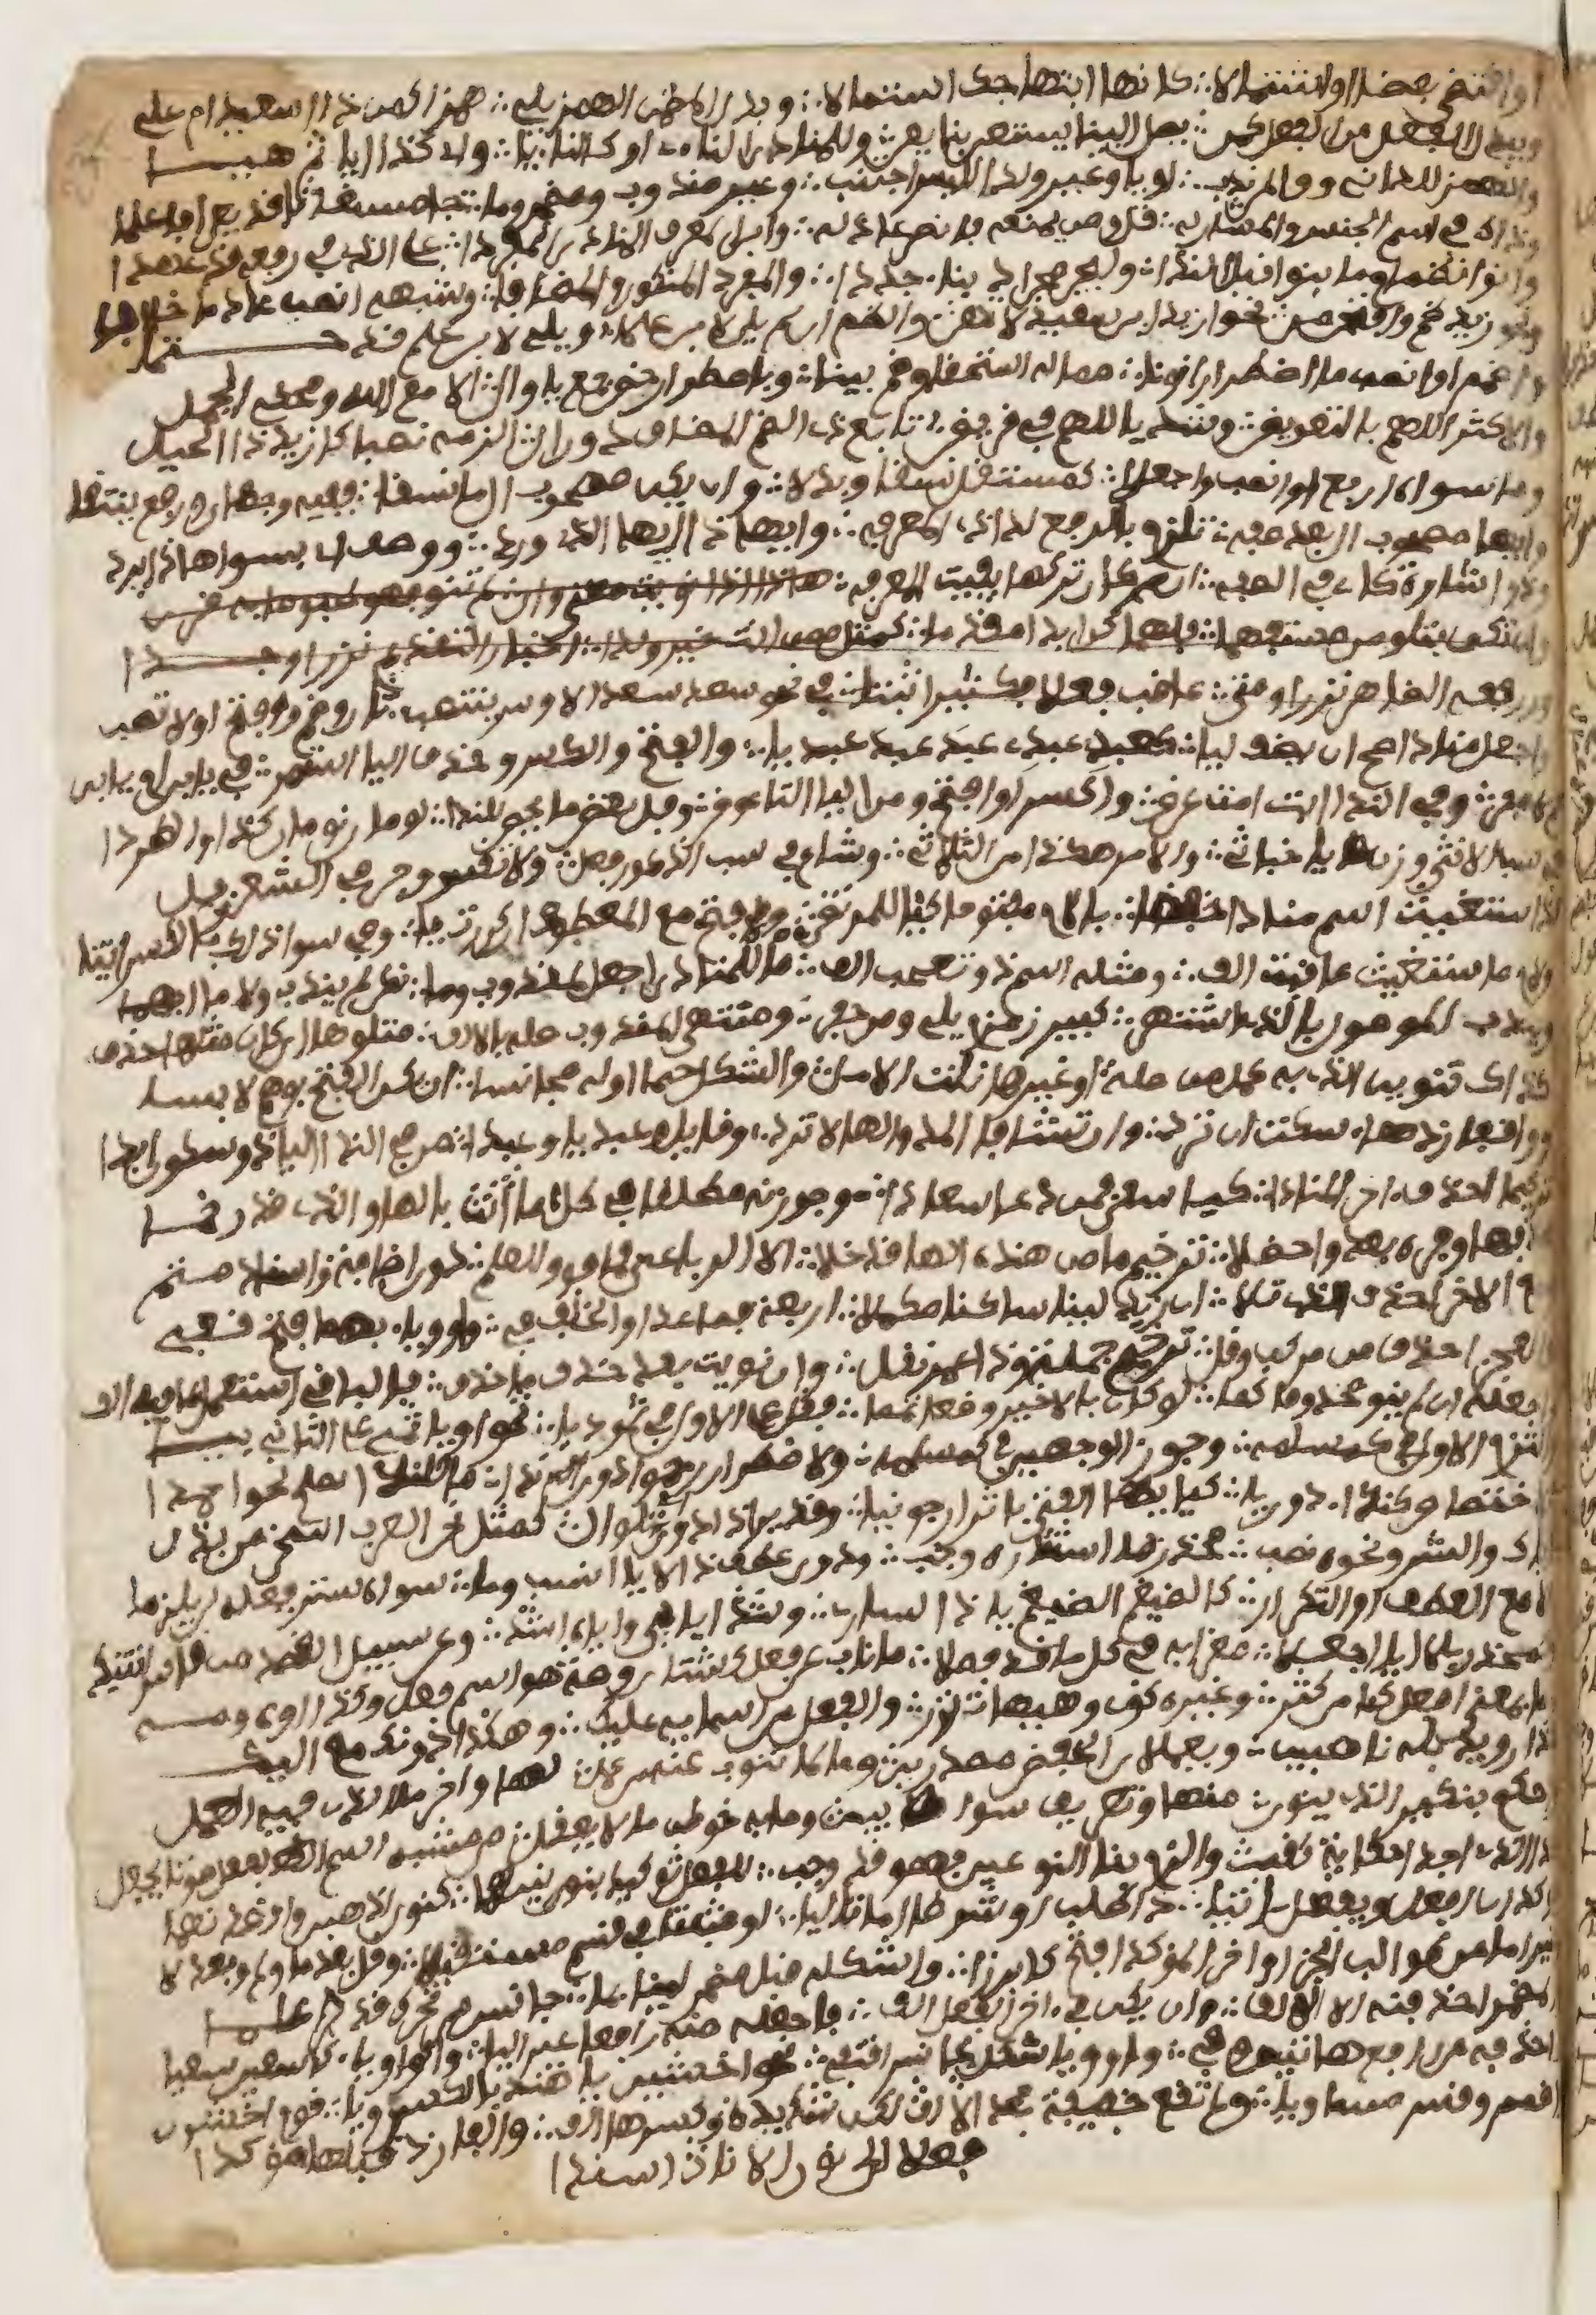 او اقتضى بعضا او اشتمالا ∴ كانها ابتهاجك استمالا ∴ وبدل المضمن الهمز يلي ∴ همزا كمن ذا اسعيد ام علي
ويبدل الفعل من الفعل كمن ∴ يصل الينا يستعن بنا يعن ∴ وللمنادى الناء او كالناء يا ∴ واي كذا ايا ثم هيا
والهمز للداني ووا لمن ندب ∴ او يا وغير وا لدى اللبس اجتنب ∴ وغير مندوب ومضمر وما ∴ جا مستغاثا قد يعرى فاعلما
وذاك في اسم الجنس والمشار له ∴ قل ومن يمنعه فانصر عاذله ∴ وابن المعرف المنادى المفردا ∴ على الذي في رفعه قد عهدا
وانو انضمام ما بنوا قبل الندا ∴ وليجر مجرى ذي بناء جددا ∴ والمفرد المنكور والمضافا ∴ وشبهه انصب عادما خلافا
ونحو زيد ضم وافتحن من ∴ نحو ازيد ابن سعيد لا تهن ∴ والضم ان لم يل الابن علما ∴ ويل الابن علم قد حتما
واضمم او انصب ما اضطرارا نونا ∴ مما له استحقاق ضم بينا ∴ وباضطرار خص جمع يا وال ∴ الا مع الله ومحكي الجمل
والاكثر اللهم بالتعويض ∴ وشذ يا اللهم في قريض ∴ تابع ذي الضم المضاف دون ال ∴ الزمه نصبا كازيد ذا الحيل
وما سواه ارفع او انصب واجعلا ∴ كمستقل نسقا وبدلا ∴ وان يكن مصحوب ال ما نسقا ∴ ففيه وجهان ورفع ينتقى
وايها مصحوب ال بعد صفه ∴ تلزم بالرفع لدى ذي المعرفه ∴ وايهذا ايها الذي ورد ∴ ووصف اي بسوى هذا يرد
وذو اشارة كاي في الصفه ∴ ان كان تركها يفيت المعرفه ∴ هذا اذا نويت معنى من وان ∴ لم تنو فهو طبق ما به قرن
وان تكن بتلو من مستفهما ∴ فلهما كن ابدا مقدما ∴ كمثل ممن انت خير ولدا ∴ اخبار التقديم نزرا وجدا
ورفعه الظاهر نزر ومتى ∴ عاقب فعلا فكثيرا ثبتا ∴ في نحو سعد سعد الاوس ينتصب ∴ ثان وضم وافتح اولا تصب
واجعل منادى صح ان يضف ليا ∴ كعبد عبدي عبد عبدا عبديا ∴ والفتح والكسر وحذف اليا استمر ∴ في يا ابن ام يا ابن
عم لا مفر ∴ وفي الندا ابت امت عرض ∴ واكسر او افتح ومن اليا التا عوض ∴ وفل بعض ما يخص بالندا ∴ لومان نومان كذا واطردا
في سب الانثى وزن يا خباث ∴ والامر هكذا من الثلاثي ∴ وشاع في سب الذكور فعل ∴ ولا تقس وجر في الشعر فل
اذا استغيث اسم منادى خفضا ∴ باللام مفتوحا كيا للمرتضى ∴ وافتح مع المعطوف ان كررت يا ∴ وفي سوى ذلك بالكسر ائتيا
ولام ما استغيث عاقبت الف ∴ ومثله اسم ذو تعجب الف ∴ ما للمنادى اجعل لمندوب وما ∴ نكر لم يندب ولا ما ابهما
ويندب الموصول بالذي اشتهر ∴ كبير زمزم يلي وا من حفر ∴ ومنتهى المندوب صله بالالف ∴ متلوها ان كان مثلها حذف
كذاك تنوين الذي به كمل ∴ من صلة او غيرها نلت الامل ∴ والشكل حتما اوله مجانسا ∴ ان يكن الفتح بوهم لابسا
وواقفا زد هاء سكت ان ترد ∴ وان تشا فالمد والها لا تزد ∴ وقايل وا عبديا وا عبدا ∴ من في الندا اليا ذا سكون ابدا
ترخيما احذف اخر المنادا ∴ كيا سعا فيمن دعا سعادا ∴ وجوزنه مطلقا في كل ما ∴ انث بالها والذي قد رخما
بحذفها وفره بعد واحظلا ∴ ترخيم ما من هذه الها قد خلا ∴ الا الرباعي فما فوق العلم ∴ دون اضافة واسناد متم
ومع الاخر احذف الذي تلا ∴ ان زيد لينا ساكنا مكملا ∴ اربعة فصاعدا والخلف في ∴ واو وياء بهما فتح قفي
والعجز احذف من مركب وقل ∴ ترخيم جملة وذا عمر نقل ∴ وان نويت بعد حذف ما حذف ∴ فالباقي استعمل بما فيه الف
واجعله ان لم ينو محذوفا كما ∴ لو كان بالاخير وضعا تمما ∴ فقل على الاول في ثمود يا ∴ ثمو ويا ثمي على الثاني بيا
والتزم الاول في كمسلمه ∴ وجوز الوجهين في كمسلمه ∴ ولاضطرار رخموا دون ندا ∴ ما للندا يصلح نحو احمدا
الاختصاص كنداء دون يا ∴ كايها الفتى باثر ارجونيا ∴ وقد يرى ذا دون اي تلو ال ∴ كمثل نحن العرب اسخى من بذل
اياك والشر ونحوه نصب ∴ محذر بما استتاره وجب ∴ ودون عطف ذا لايا انسب وما ∴ سواه ستر فعله لن يلزما
الا مع العطف او التكرار ∴ كالضيغم الضيغم يا ذا الساري ∴ وشذ اياي واياه اشذ ∴ وعن سبيل القصد من قاس انتبذ
وكمحذر بلا ايا اجعلا ∴ مغرى به في كل ما قد فصلا ∴ ما ناب عن فعل كشتان وصه ∴ هو اسم فعل وكذا اوه ومه
وما بمعنى افعل كامين كثر ∴ وغيره كوي وهيهات نزر ∴ والفعل من اسمائه عليك ∴ وهكذا دونك مع اليك
كذا رويد بله ناصبين ∴ ويعملان الخفض مصدرين ∴ وما لما تنوب عنه من عمل ∴ لها واخر ما لذي فيه العمل
واحكم بتنكير الذي ينون ∴ منها وتعريف سواه بين ∴ وما به خوطب ما لا يعقل ∴ من مشبه اسم الفعل صوتا يجعل
كذا الذي اجدى حكاية كقب ∴ والزم بنا النوعين فهو قد وجب ∴ للفعل توكيد بنونين هما ∴ كنوني اذهبن واقصدنهما
يؤكدان افعل ويفعل اتيا ∴ ذا طلب او شرطا اما تاليا ∴ او مثبتا في قسم مستقبلا ∴ وقل بعد ما ولم وبعد لا
وغير اما من طوالب الجزا ∴ واخر المؤكد افتح كابرزا ∴ واشكله قبل مضمر لين بما ∴ جانس من تحرك قد علما
والمضمر احذفنه الا الالف ∴ وان يكن في اخر الفعل الف ∴ فاجعله منه رافعا غير اليا ∴ والواو ياء كاسعين سعيا
واحذفه من رافع هاتين وفي ∴ واو ويا شكل مجانس قفي ∴ نحو اخشين يا هند بالكسر ويا ∴ قوم اخشون
واضمم وقس مسويا ∴ ولم تقع خفيفة بعد الالف ∴ لكن شديدة وكسرها الف ∴ والفا زد قبلها مؤكدا
فعلا الى نون الاناث اسندا